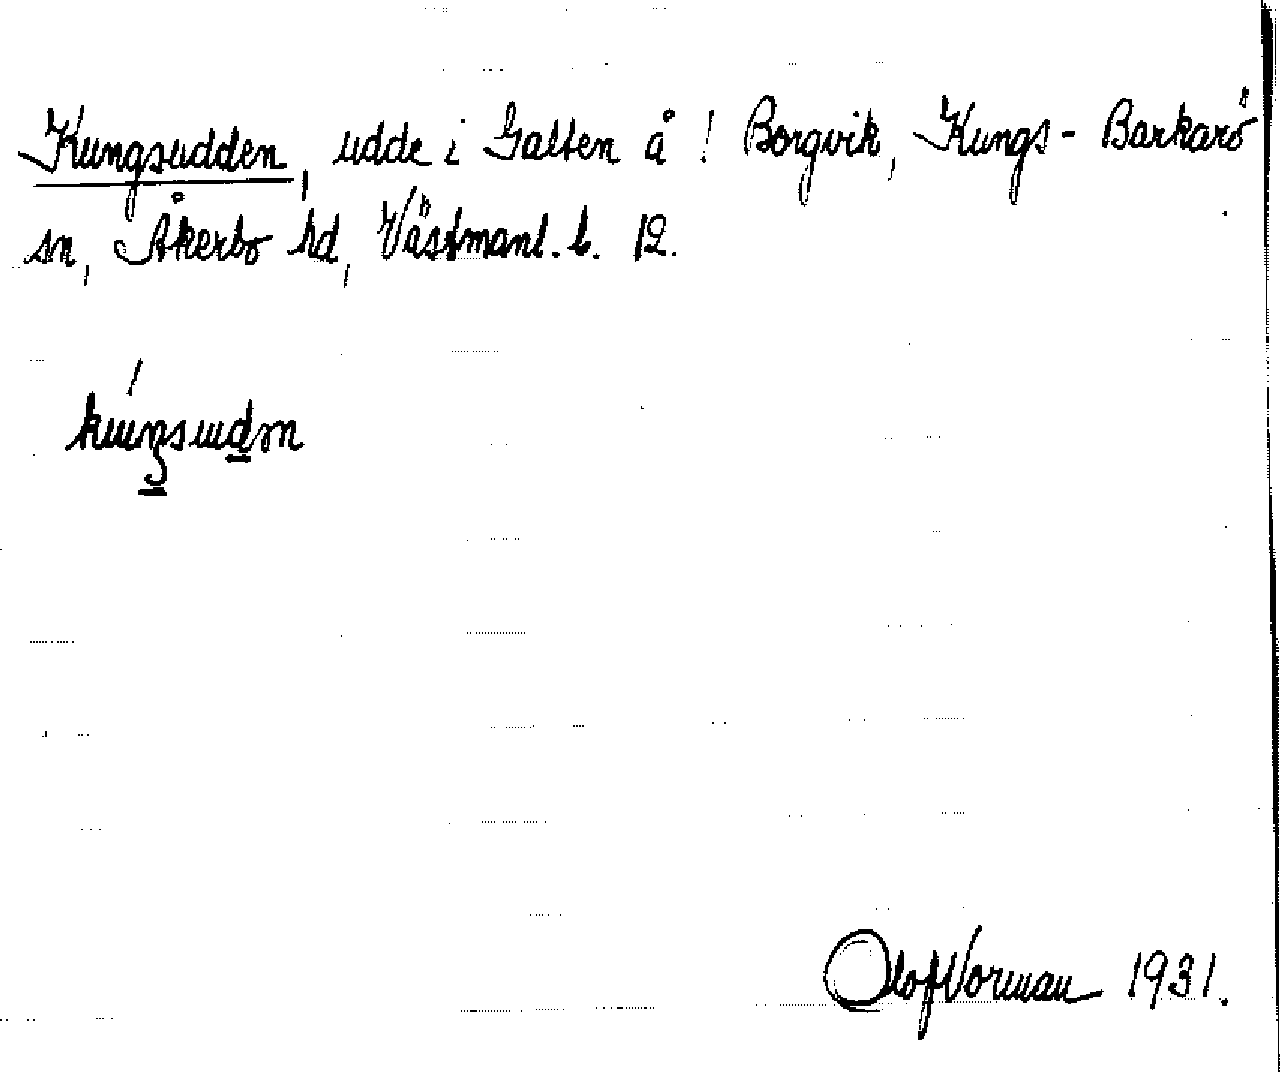 Kungsudden, udde i Galten å ! Borgvik, Kungs-Barkarö
sn, Åkerbo hd, Västmanl. l. 12.
kuŋsudn
Olof Norman 1931.